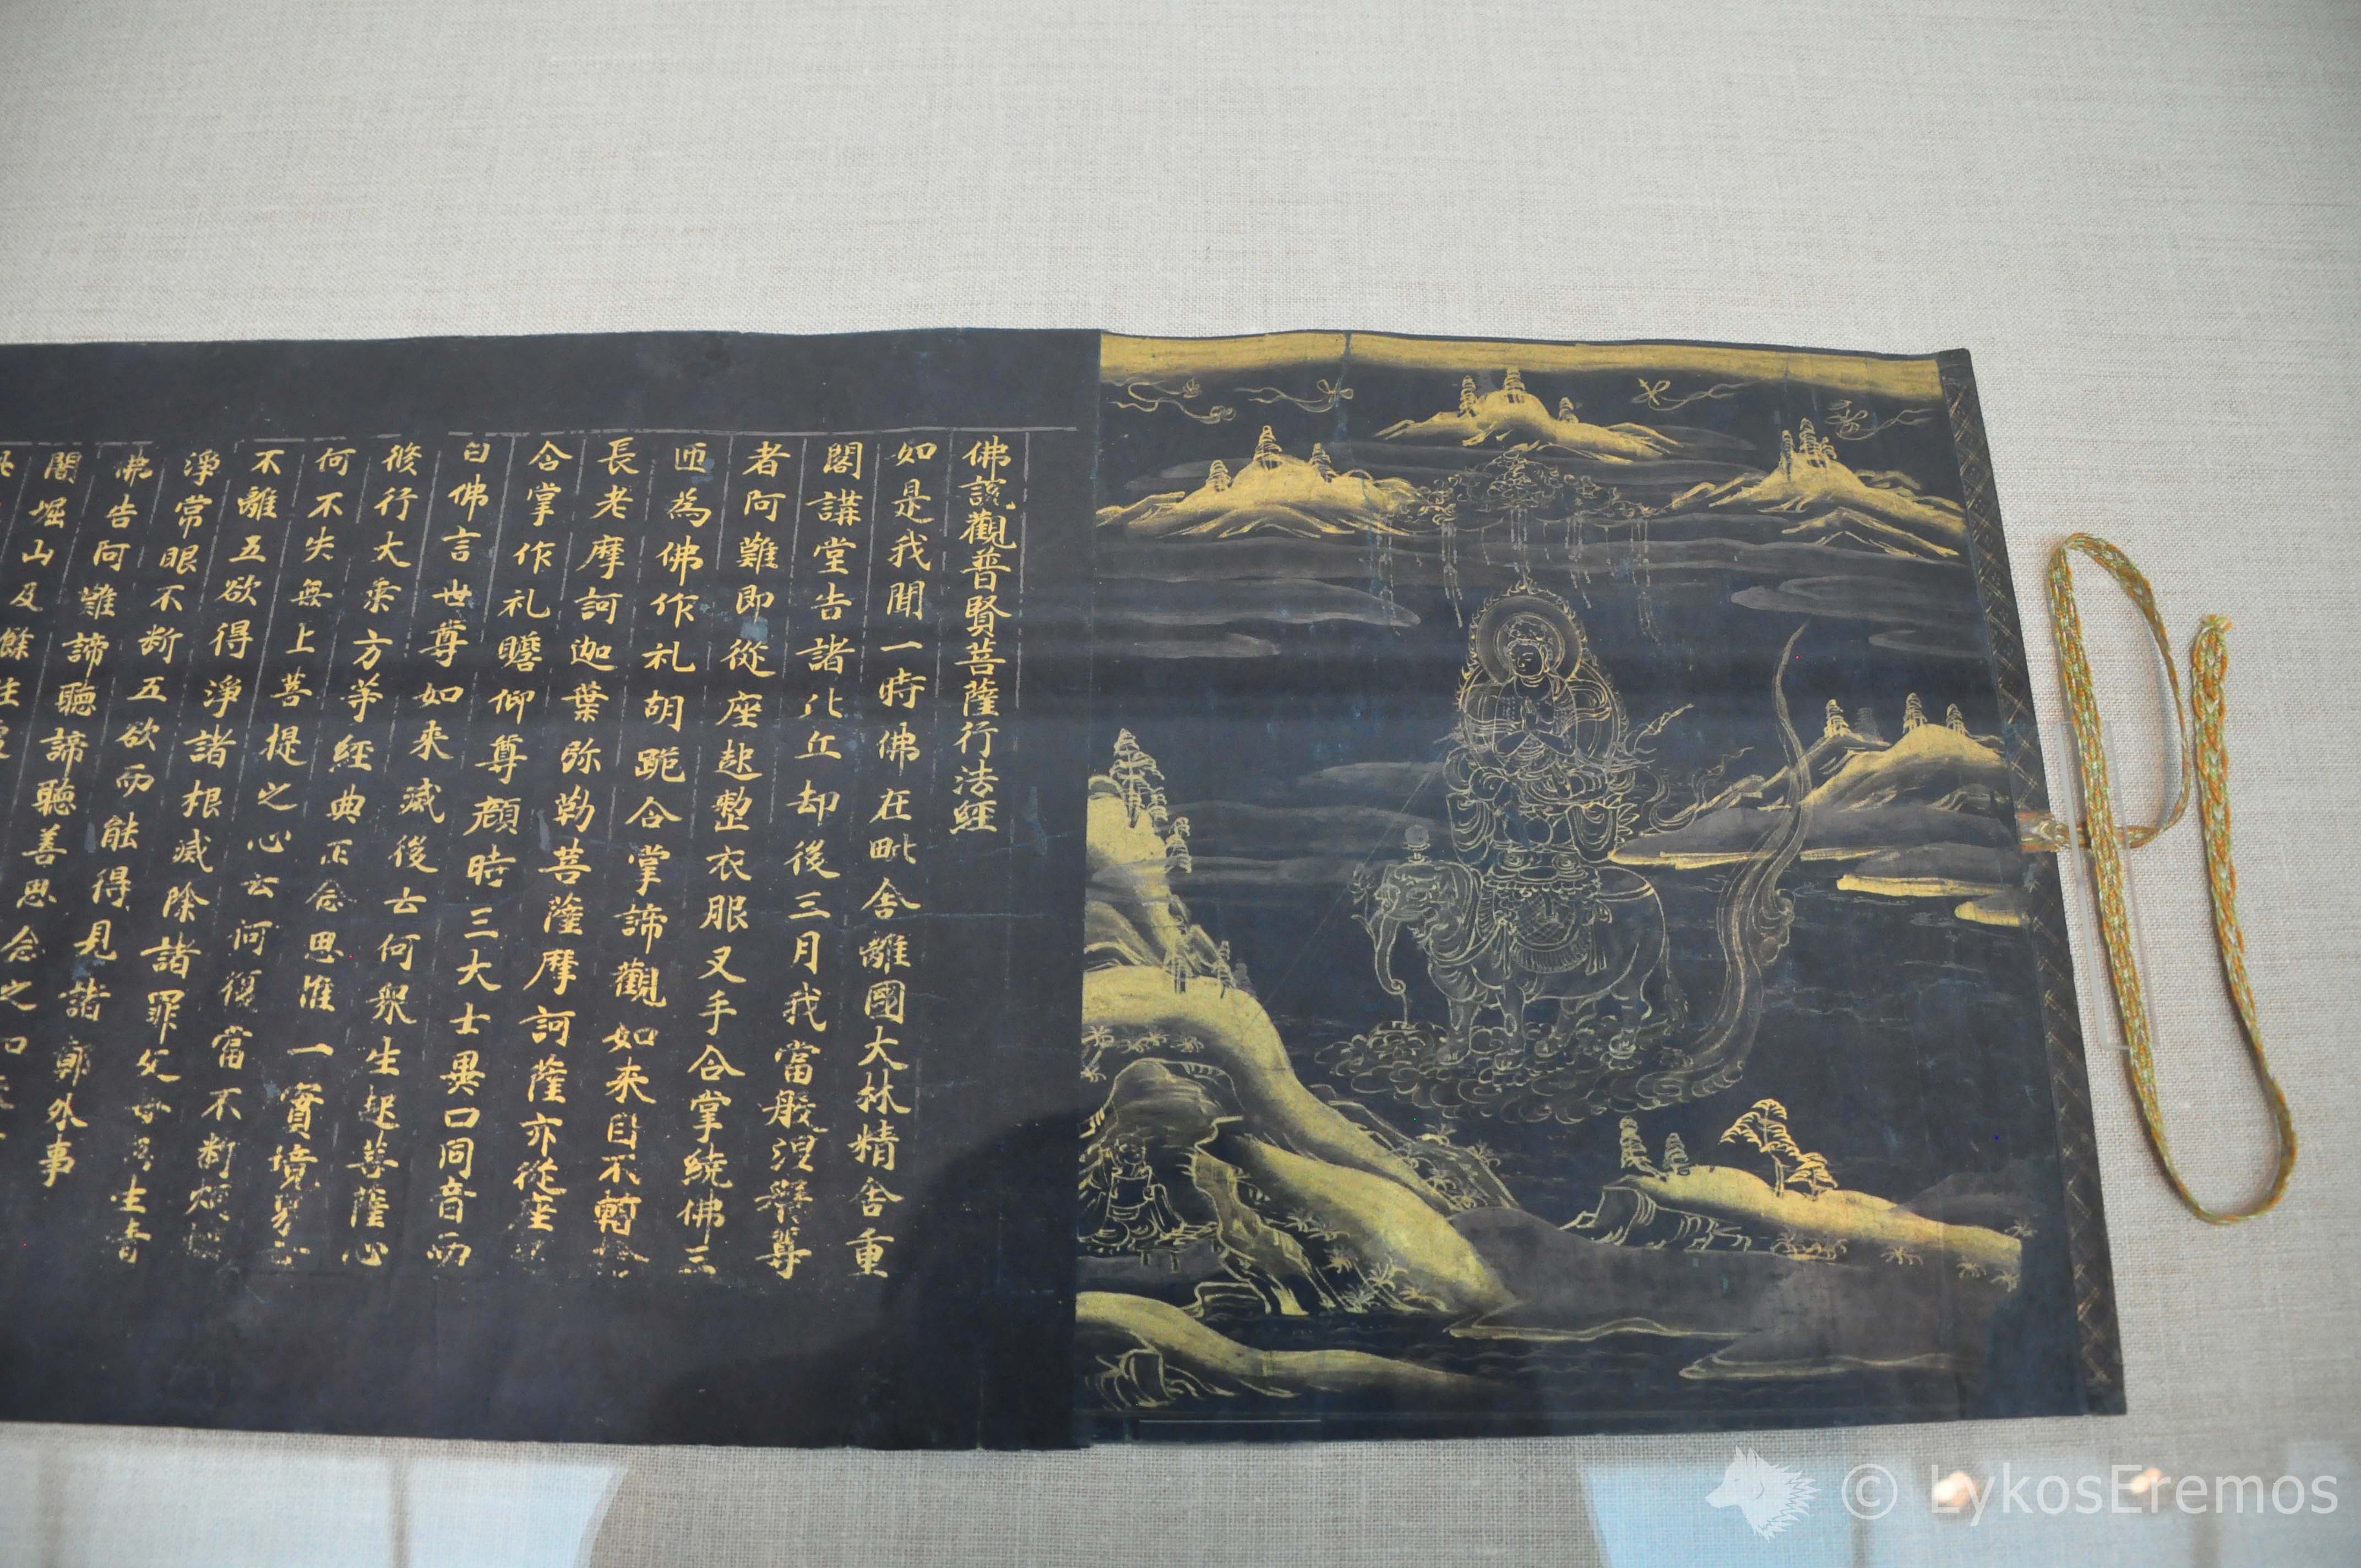 佛説觀普賢菩薩行法經
如是我聞一時佛在毗舍離國大林精舍重
閣講堂告諸比丘却後三月我當般涅槃尊
者阿難即從座起整衣服叉手合掌繞佛三
匝為佛作礼胡跪合掌諦觀如来目不暫捨
長老摩訶迦葉弥勒菩薩摩訶薩亦從座起
合掌作礼瞻仰尊顔時三大士異口同音而
白佛言世尊如来滅後云何衆生起菩薩心
修行大乘方等經典正念思惟一實境界云
何不失無上菩提之心云何復當不断煩惱
不離五欲得淨諸根滅除諸罪父母所生清
淨常眼不断五欲而能得見諸鄣外事
佛告阿難諦聽諦聽善思念之如来
闍崛山及餘住處
© LykosEremos